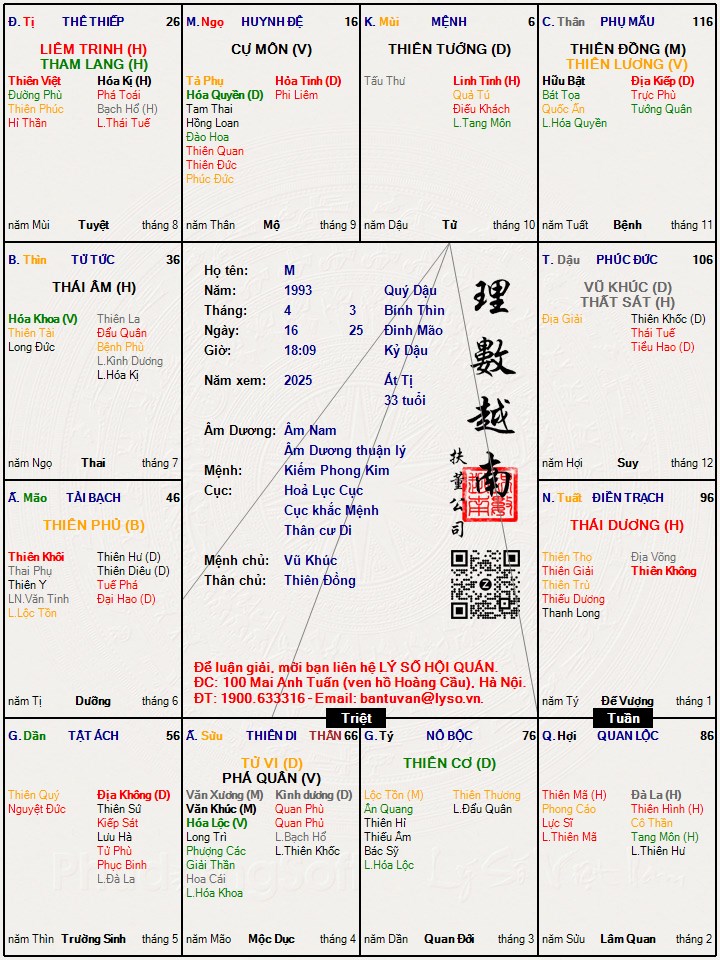 Đ. Tị THÊ THIẾP 26
LIÊM TRINH (H)
THAM LANG (H)
Thiên Việt Hóa Kị (H)
Đường Phù Phá Toái
Thiên Phúc Bạch Hổ (H)
Hỉ Thần L.Thái Tuế
năm Mùi Tuyệt tháng 8
M. Ngọ HUYNH ĐỆ 16
CỰ MÔN (V)
Tả Phụ Hỏa Tinh (D)
Hóa Quyền (D) Phi Liêm
Tam Thai
Hồng Loan
Đào Hoa
Thiên Quan
Thiên Đức
Phúc Đức
năm Thân Mộ tháng 9
K. Mùi MỆNH 6
THIÊN TƯỚNG (D)
Tấu Thư Linh Tinh (H)
Quả Tú
Điếu Khách
L.Tang Môn
năm Dậu Tử tháng 10
C. Thân PHỤ MẪU 116
THIÊN ĐỒNG (M)
THIÊN LƯƠNG (V)
Hữu Bật Địa Kiếp (D)
Bát Tọa Trực Phù
Quốc Ấn Tướng Quân
L.Hóa Quyền
năm Tuất Bệnh tháng 11
B. Thìn TỬ TỨC 36
THÁI ÂM (H)
Hóa Khoa (V) Thiên La
Thiên Tài Đẩu Quân
Long Đức Bệnh Phù
L.Kình Dương
L.Hóa Kị
năm Ngọ Thai tháng 7
Họ tên: M
Năm: 1993 Quý Dậu
Tháng: 4 3 Bính Thìn
Ngày: 16 25 Đinh Mão
Giờ: 18:09 Kỷ Dậu
Năm xem: 2025 Ất Tị
33 tuổi
Âm Dương: Âm Nam
Âm Dương thuận lý
Mệnh: Kiếm Phong Kim
Cục: Hoả Lục Cục
Cục khắc Mệnh
Thân cư Di
Mệnh chủ: Vũ Khúc
Thân chủ: Thiên Đồng
理數越南
扶董公司
Để luận giải, mời bạn liên hệ LÝ SỐ HỘI QUÁN.
ĐC: 100 Mai Anh Tuấn (ven hồ Hoàng Cầu), Hà Nội.
ĐT: 1900.633316 - Email: bantuvan@lyso.vn.
T. Dậu PHÚC ĐỨC 106
VŨ KHÚC (D)
THẤT SÁT (H)
Địa Giải Thiên Khốc (D)
Thái Tuế
Tiểu Hao (D)
năm Hợi Suy tháng 12
Ấ. Mão TÀI BẠCH 46
THIÊN PHỦ (B)
Thiên Khôi Thiên Hư (D)
Thai Phụ Thiên Diêu (D)
Thiên Y Tuế Phá
LN.Văn Tinh Đại Hao (D)
L.Lộc Tồn
năm Tị Dưỡng tháng 6
N. Tuất ĐIỀN TRẠCH 96
THÁI DƯƠNG (H)
Thiên Thọ Địa Võng
Thiên Giải Thiên Không
Thiên Trù
Thiếu Dương
Thanh Long
năm Tý Đế Vượng tháng 1
Triệt
Tuần
G. Dần TẬT ÁCH 56
Thiên Quý Địa Không (D)
Nguyệt Đức Thiên Sứ
Kiếp Sát
Lưu Hà
Tử Phù
Phục Binh
L.Đà La
năm Thìn Trường Sinh tháng 5
Ấ. Sửu THIÊN DI THÂN 66
TỬ VI (D)
PHÁ QUÂN (V)
Văn Xương (M) Kình dương (D)
Văn Khúc (M) Quan Phù
Hóa Lộc (V) Quan Phủ
Long Trì L.Bạch Hổ
Phượng Các L.Thiên Khốc
Giải Thần
Hoa Cái
L.Hóa Khoa
năm Mão Mộc Dục tháng 4
G. Tý NÔ BỘC 76
THIÊN CƠ (D)
Lộc Tồn (M) Thiên Thương
Ân Quang L.Đẩu Quân
Thiên Hỉ
Thiếu Âm
Bác Sỹ
L.Hóa Lộc
năm Dần Quan Đới tháng 3
Q. Hợi QUAN LỘC 86
Thiên Mã (H) Đà La (H)
Phong Cáo Thiên Hình (H)
Lực Sĩ Cô Thần
L.Thiên Mã Tang Môn (H)
L.Thiên Hư
năm Sửu Lâm Quan tháng 2